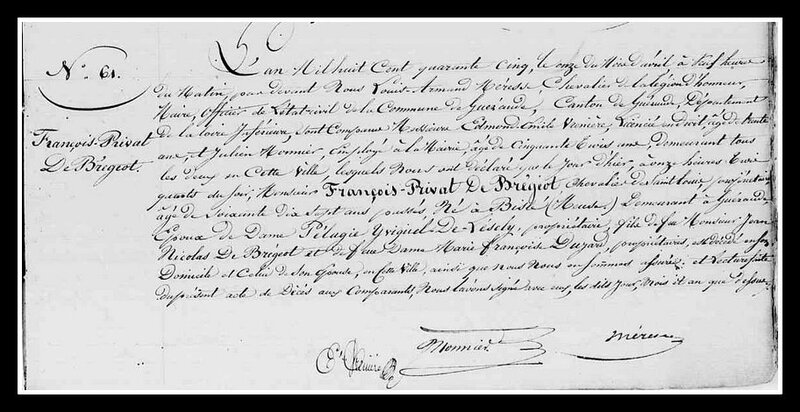 N.° 61.
François-Privat
De Brégeot.
L'an Mil huit Cent quarante Cinq, le onze du Mois d'avril à neuf heures
du Matin, par devant Nous Louis-Armand Méresse, Chevalier de la Légion d'honneur,
Maire, Officier de L'état-civil de la Commune de Guérande, Canton de Guérande, Département
de la Loire Inférieure, Sont Comparus Messieurs Edmond-Emile Vannière, Licencié en droit, âgé de trente
ans, et Julien Monnier, Employé à la Mairie, âgé de Cinquante trois ans, demeurant tous
les deux en Cette Ville, lesquels Nous ont déclaré que le Jour d'hier, à onze heures trois
quarts du soir, Monsieur François-Privat De Brégeot, Chevalier de Saint Louis, propriétaire,
âgé de Soixante dix Sept ans passés, Né à (Meuse) Demeurant à Guérande
Epoux de Dame Pélagie Yviquel-De-Lescly, propriétaire, fils de feu Monsieur Jean
Nicolas De Brégeot et de feue Dame Marie Françoise propriétaires, est décédé en son
Domicile et Celui de Son Epouse, en Cette Ville, ainsi que Nous Nous en Sommes assuré; et Lecture faite
du présent acte de Décès aux Comparants, Nous l'avons Signé avec eux, les dits Jour, Mois et an que dessus.
Monnier
Méresse